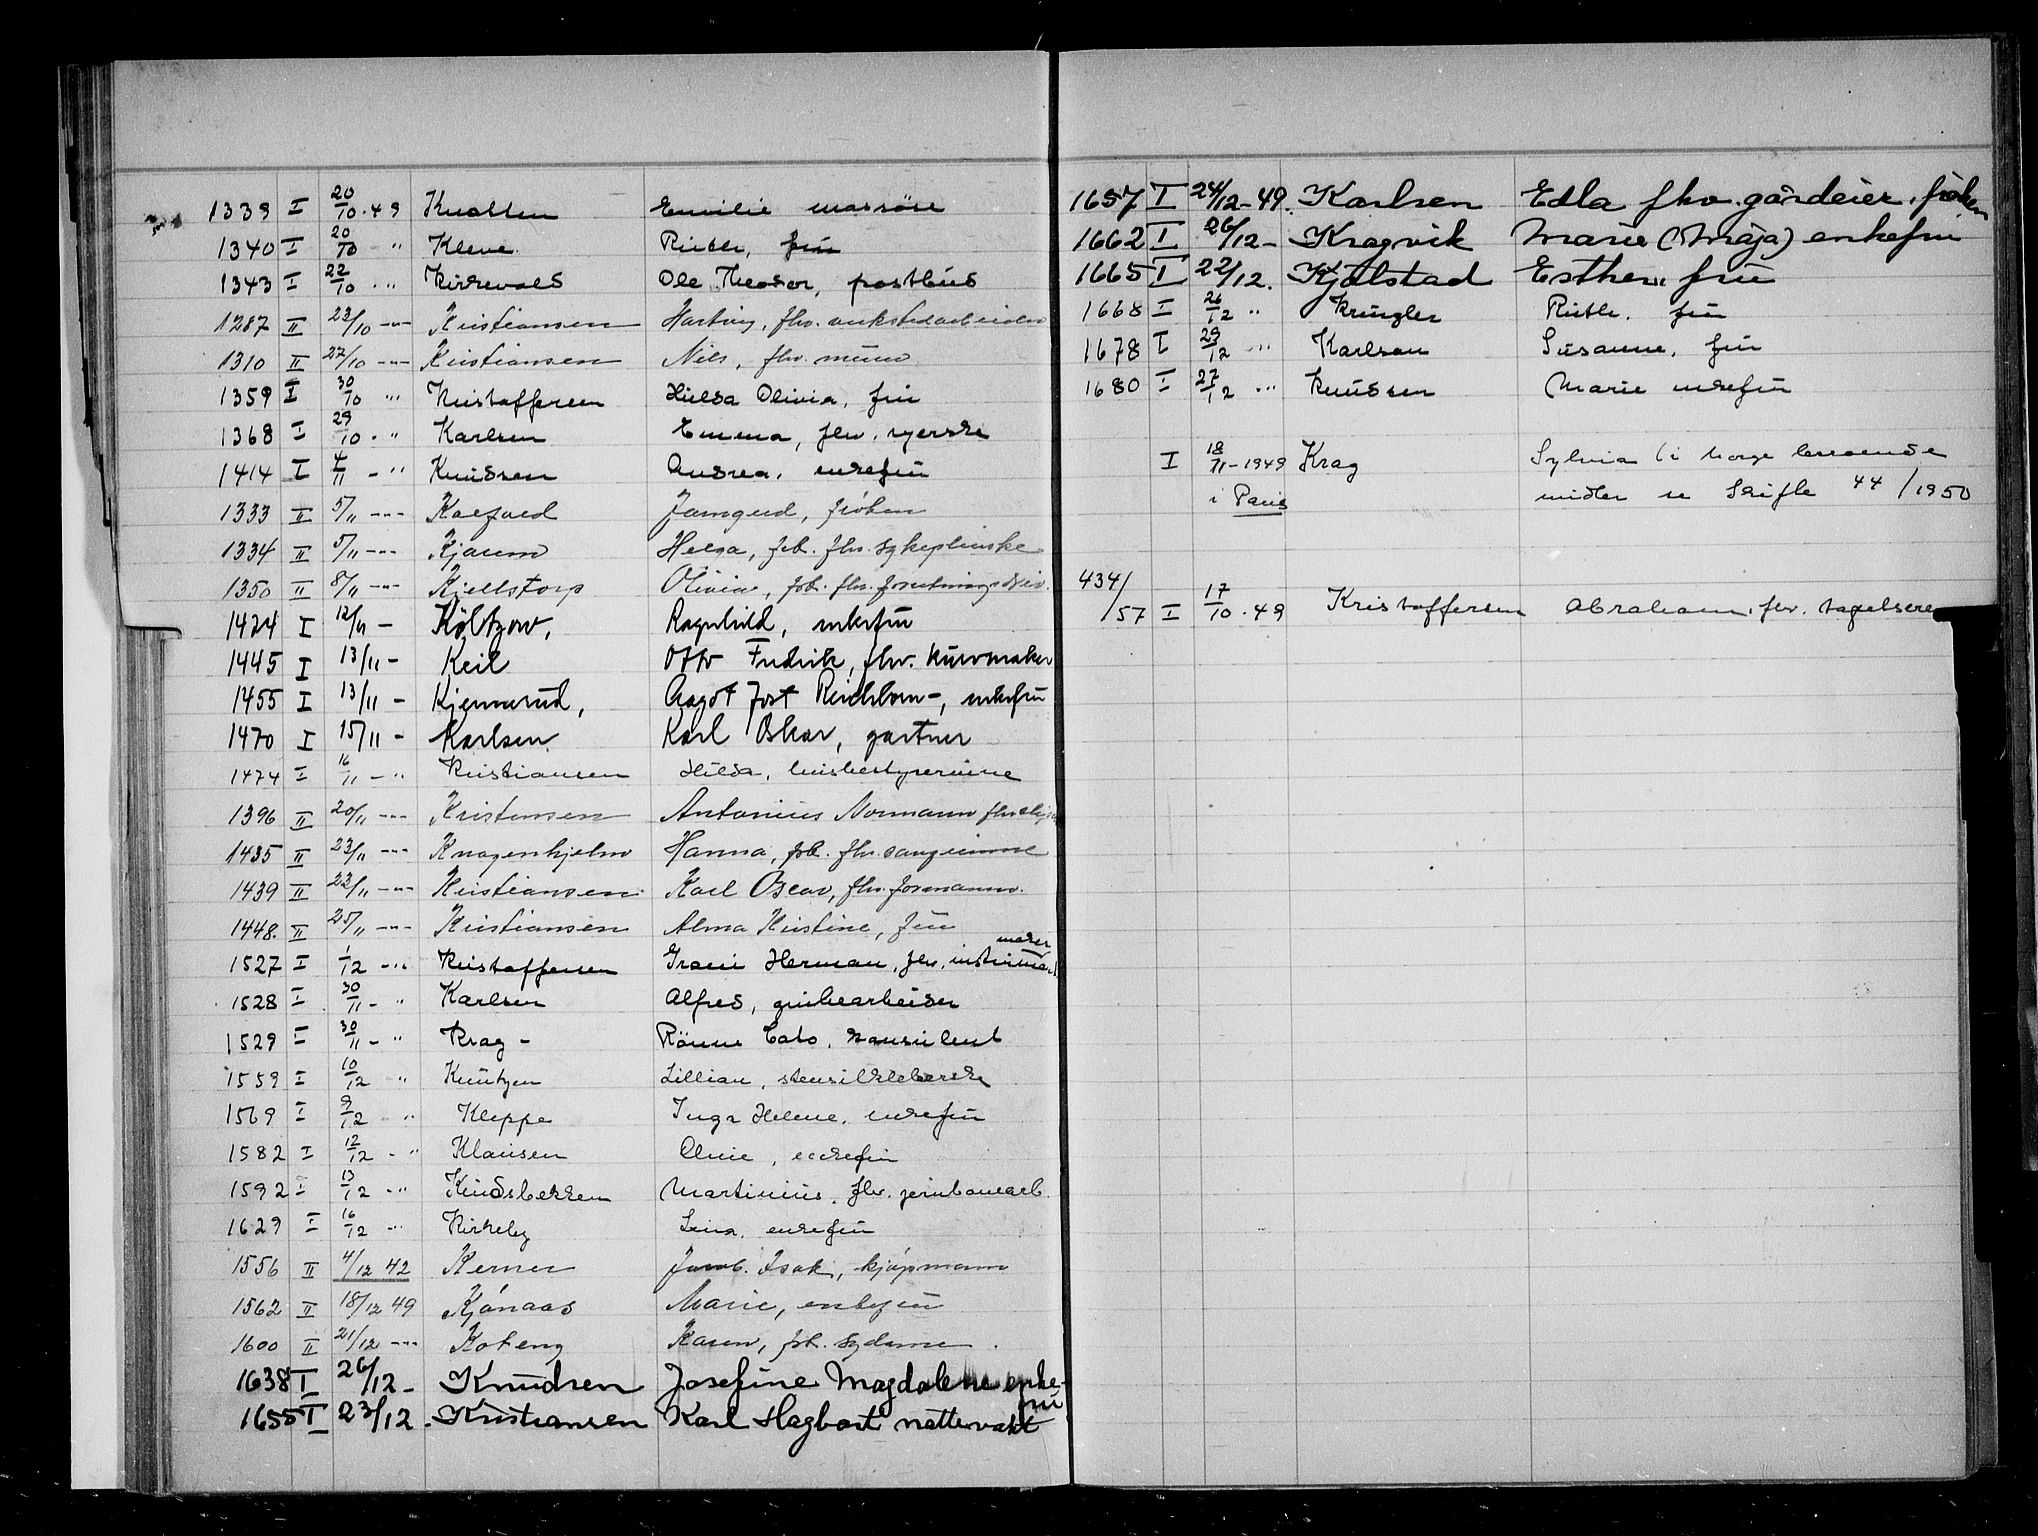 1339 I 20/10 · 49 Knolsen Emilie massøse
1340 I 20/10 " Kleve Ruth, frü
1343 I 22/10 · " Kirkevold Ole Theodor, postbud
1287 II 23/10 -"- Kristiansen Hartvig, fhv.
1310 II 27/10 -"- Kristiansen Nils, fhv. murer
1359 I 30/10 " Kristoffersen Hulda Olivia, frü
1368 I 29/10 · " Karlsen Emma, fhv. syerske
1414 I 4/11 - " Knüdsen Andrea, enkefrü
1333 II 5/11 -"- frøken
1334 II 5/11 -"- Kjærum Helga, frk. fhv. sykepleierske
1350 II 8/11 -"- Kjellstorp Olivia, frk. fhv.
1424 I 12/11 - Költzow, Ragnhild, enkefrü
1445 I 13/11 - Keil Otto Fredrik, fhv. kürvmaker
1455 I 13/11 - Kjennerüd, Aagot Jost Reichborn-, enkefrü
1470 I 15/11 - Karlsen Karl Oskar, gartner
1474 I 16/11 - " Kristiansen Hulda, hüsbestyrerinne
1396 II 20/11 -"- Kristensen Antonius Normann fhv.
1435 II 23/11 -"- Knagenhjelm Hanna, frk. fhv. sangerinne
1439 II 22/11 -"- Kristiansen Karl Oscar, fhv. formann.
1448. II 25/11 -"- Kristiansen Alma Kristine, frü
maker
1527 I 1/12 - " Kristoffersen Herman, fhv. instrüment
1528 I 30/11 - " Karlsen Alfred, grübearbeider
1529 I 30/11 - " Krag - Rönne Cato, konsulent
1559 I 10/12 " Knützen Lillian,
1569 I 9/12 " Kleppe Inga Helene, enkefrü
1582 I 12/12 - " Klaüsen Aline, enkefrü
1592 I 13/12 · " Martinius, fhv. jernbanearb.
1629 I 16/12 " Kirkeby Lina, enkefrü
1556 II 4/12 42 Kerner Isak, kjøpmann
1562 II 18/12 49 Kjónaas Marie, enkefrü
1600 II 21/12 -"- Koteng Karen, frk. sydame.
1638 I 26/12 - Knüdsen Josefine Magdalene enke-
frü
1655 I 23/12. Kristiansen Karl Hagbart nattevakt
1657 I 24/12 - 49. Karlsen Edla fhv. gårdeier, frøken
1662 I 26/12 - Kragvik Marie (Maja) enkefrü
1665 I 22/12. Kjølstad Esther, frü
1668 I 26/12 " Kringler Rüth, frü
1678 I 29/12 " Karlsen Süsanne, frü
1680 I 27/12 " Knüdsen Marie enkefrü
I 18/11 - 1949 Krag Sylvia (i Norge beroende
i Paris midler se Skifte 44/1950
434/
/57 I 17/10 · 49 Kristoffersen Abraham, fhv. tapetserer